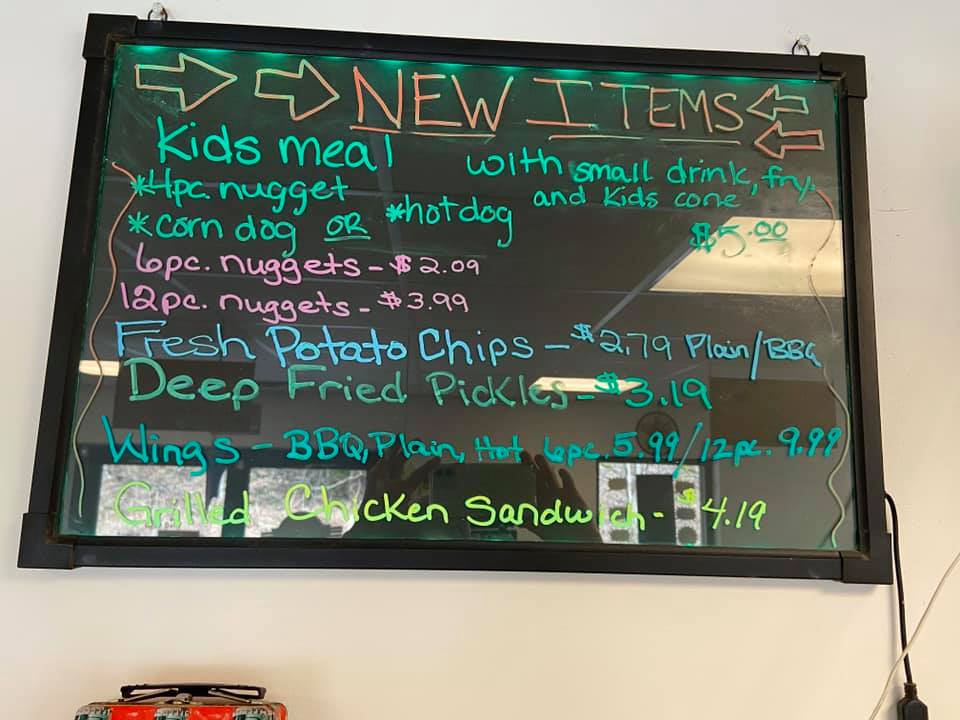 NEW ITEMS
Kids meal with small drink, fry,
and Kids cone
*4pc. nugget
*corn dog OR *hotdog $5.00
6pc. nuggets - $2.09
12pc. nuggets - $3.99
Fresh Potato Chips - $2.79 Plain/BBQ
Deep Fried Pickles - $3.19
Wings - BBQ, Plain, Hot 6pc. 5.99/12pc. 9.99
Grilled Chicken Sandwich - $4.19